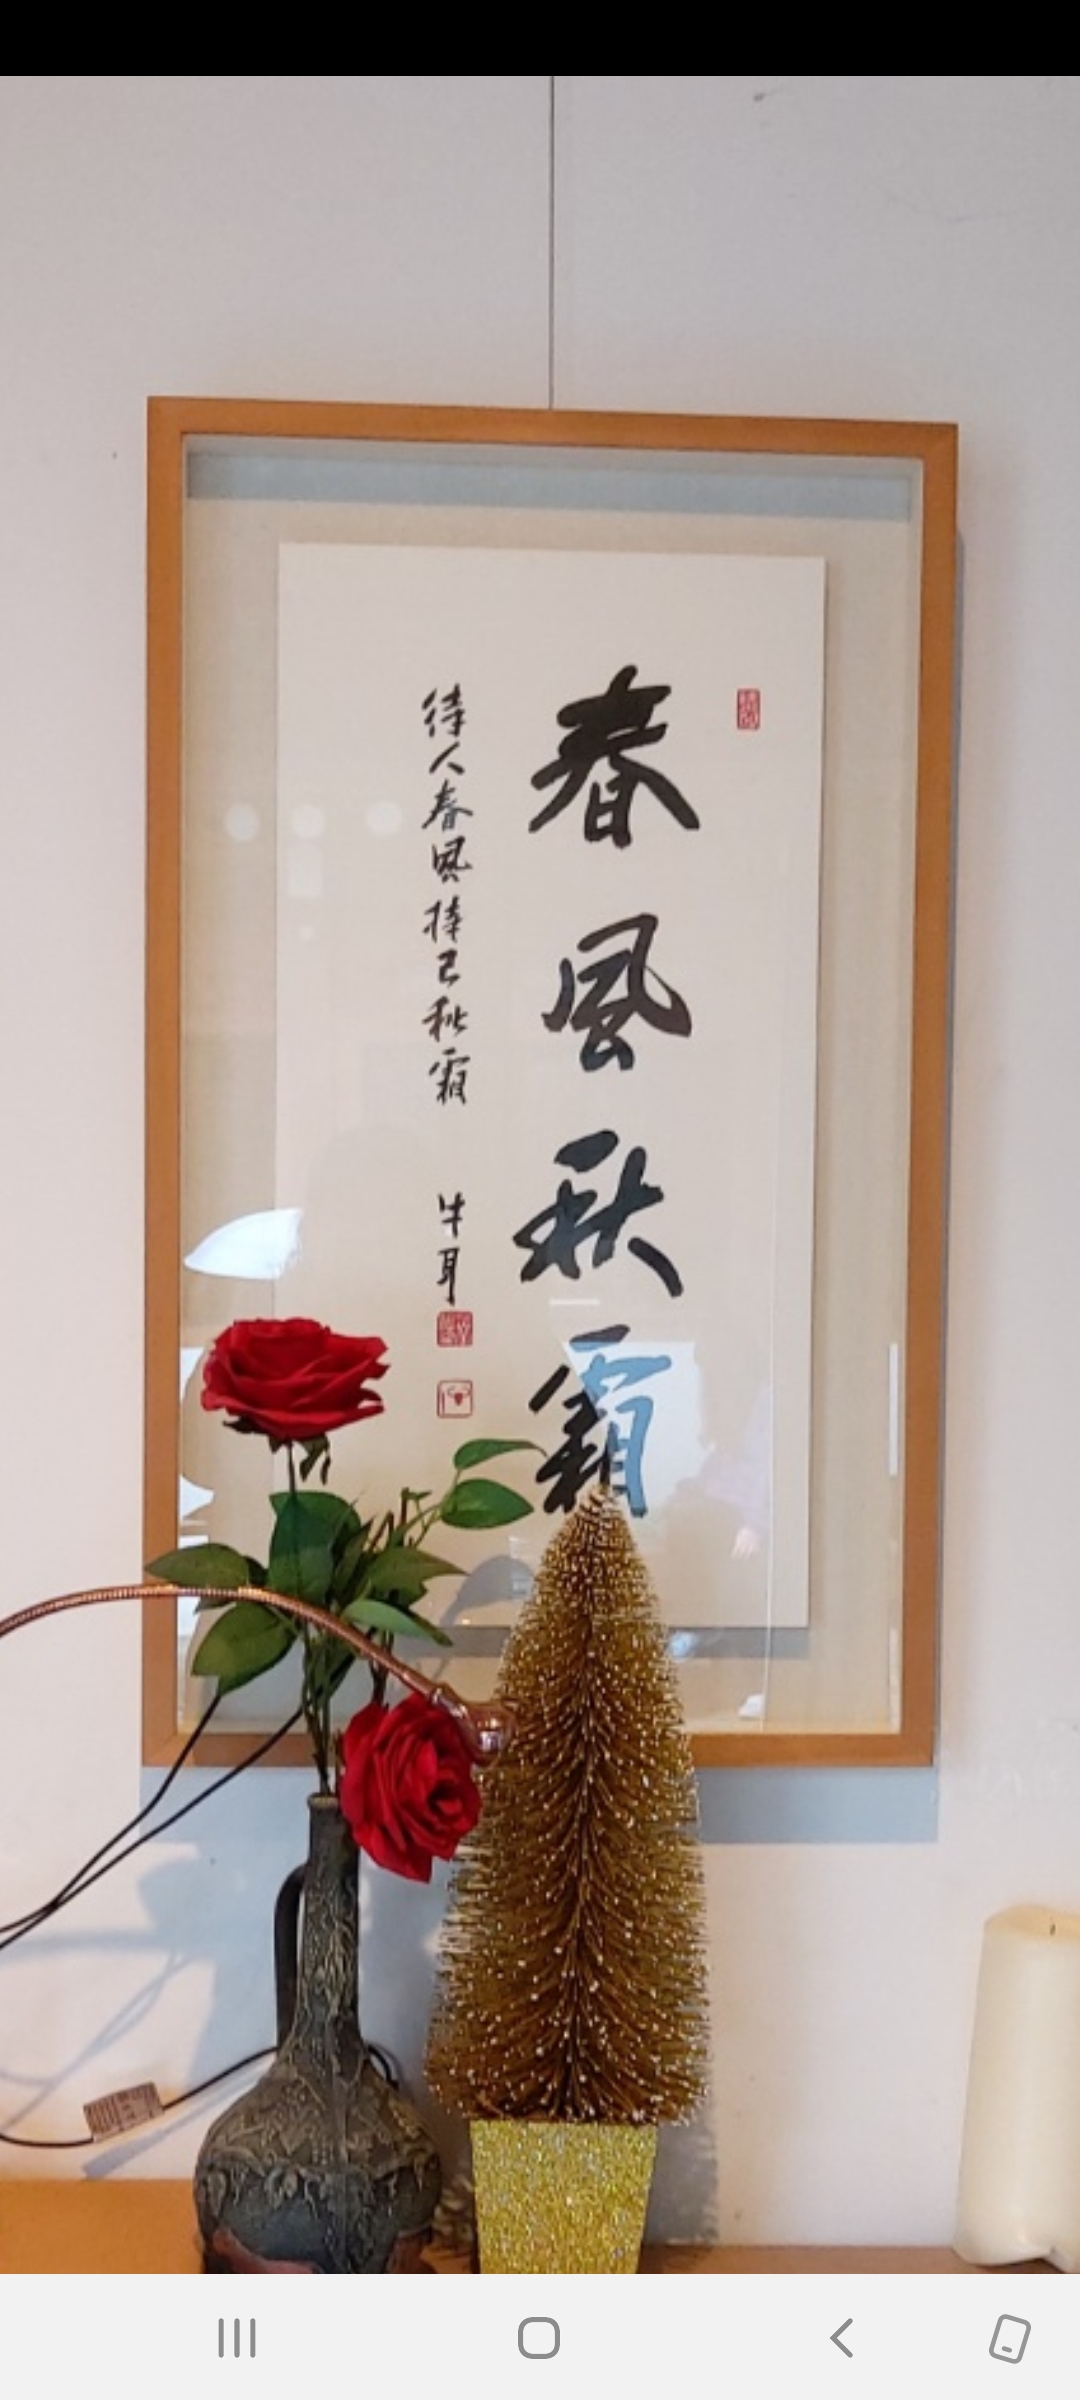 春風秋霜
待人春風持己秋霜
牛耳